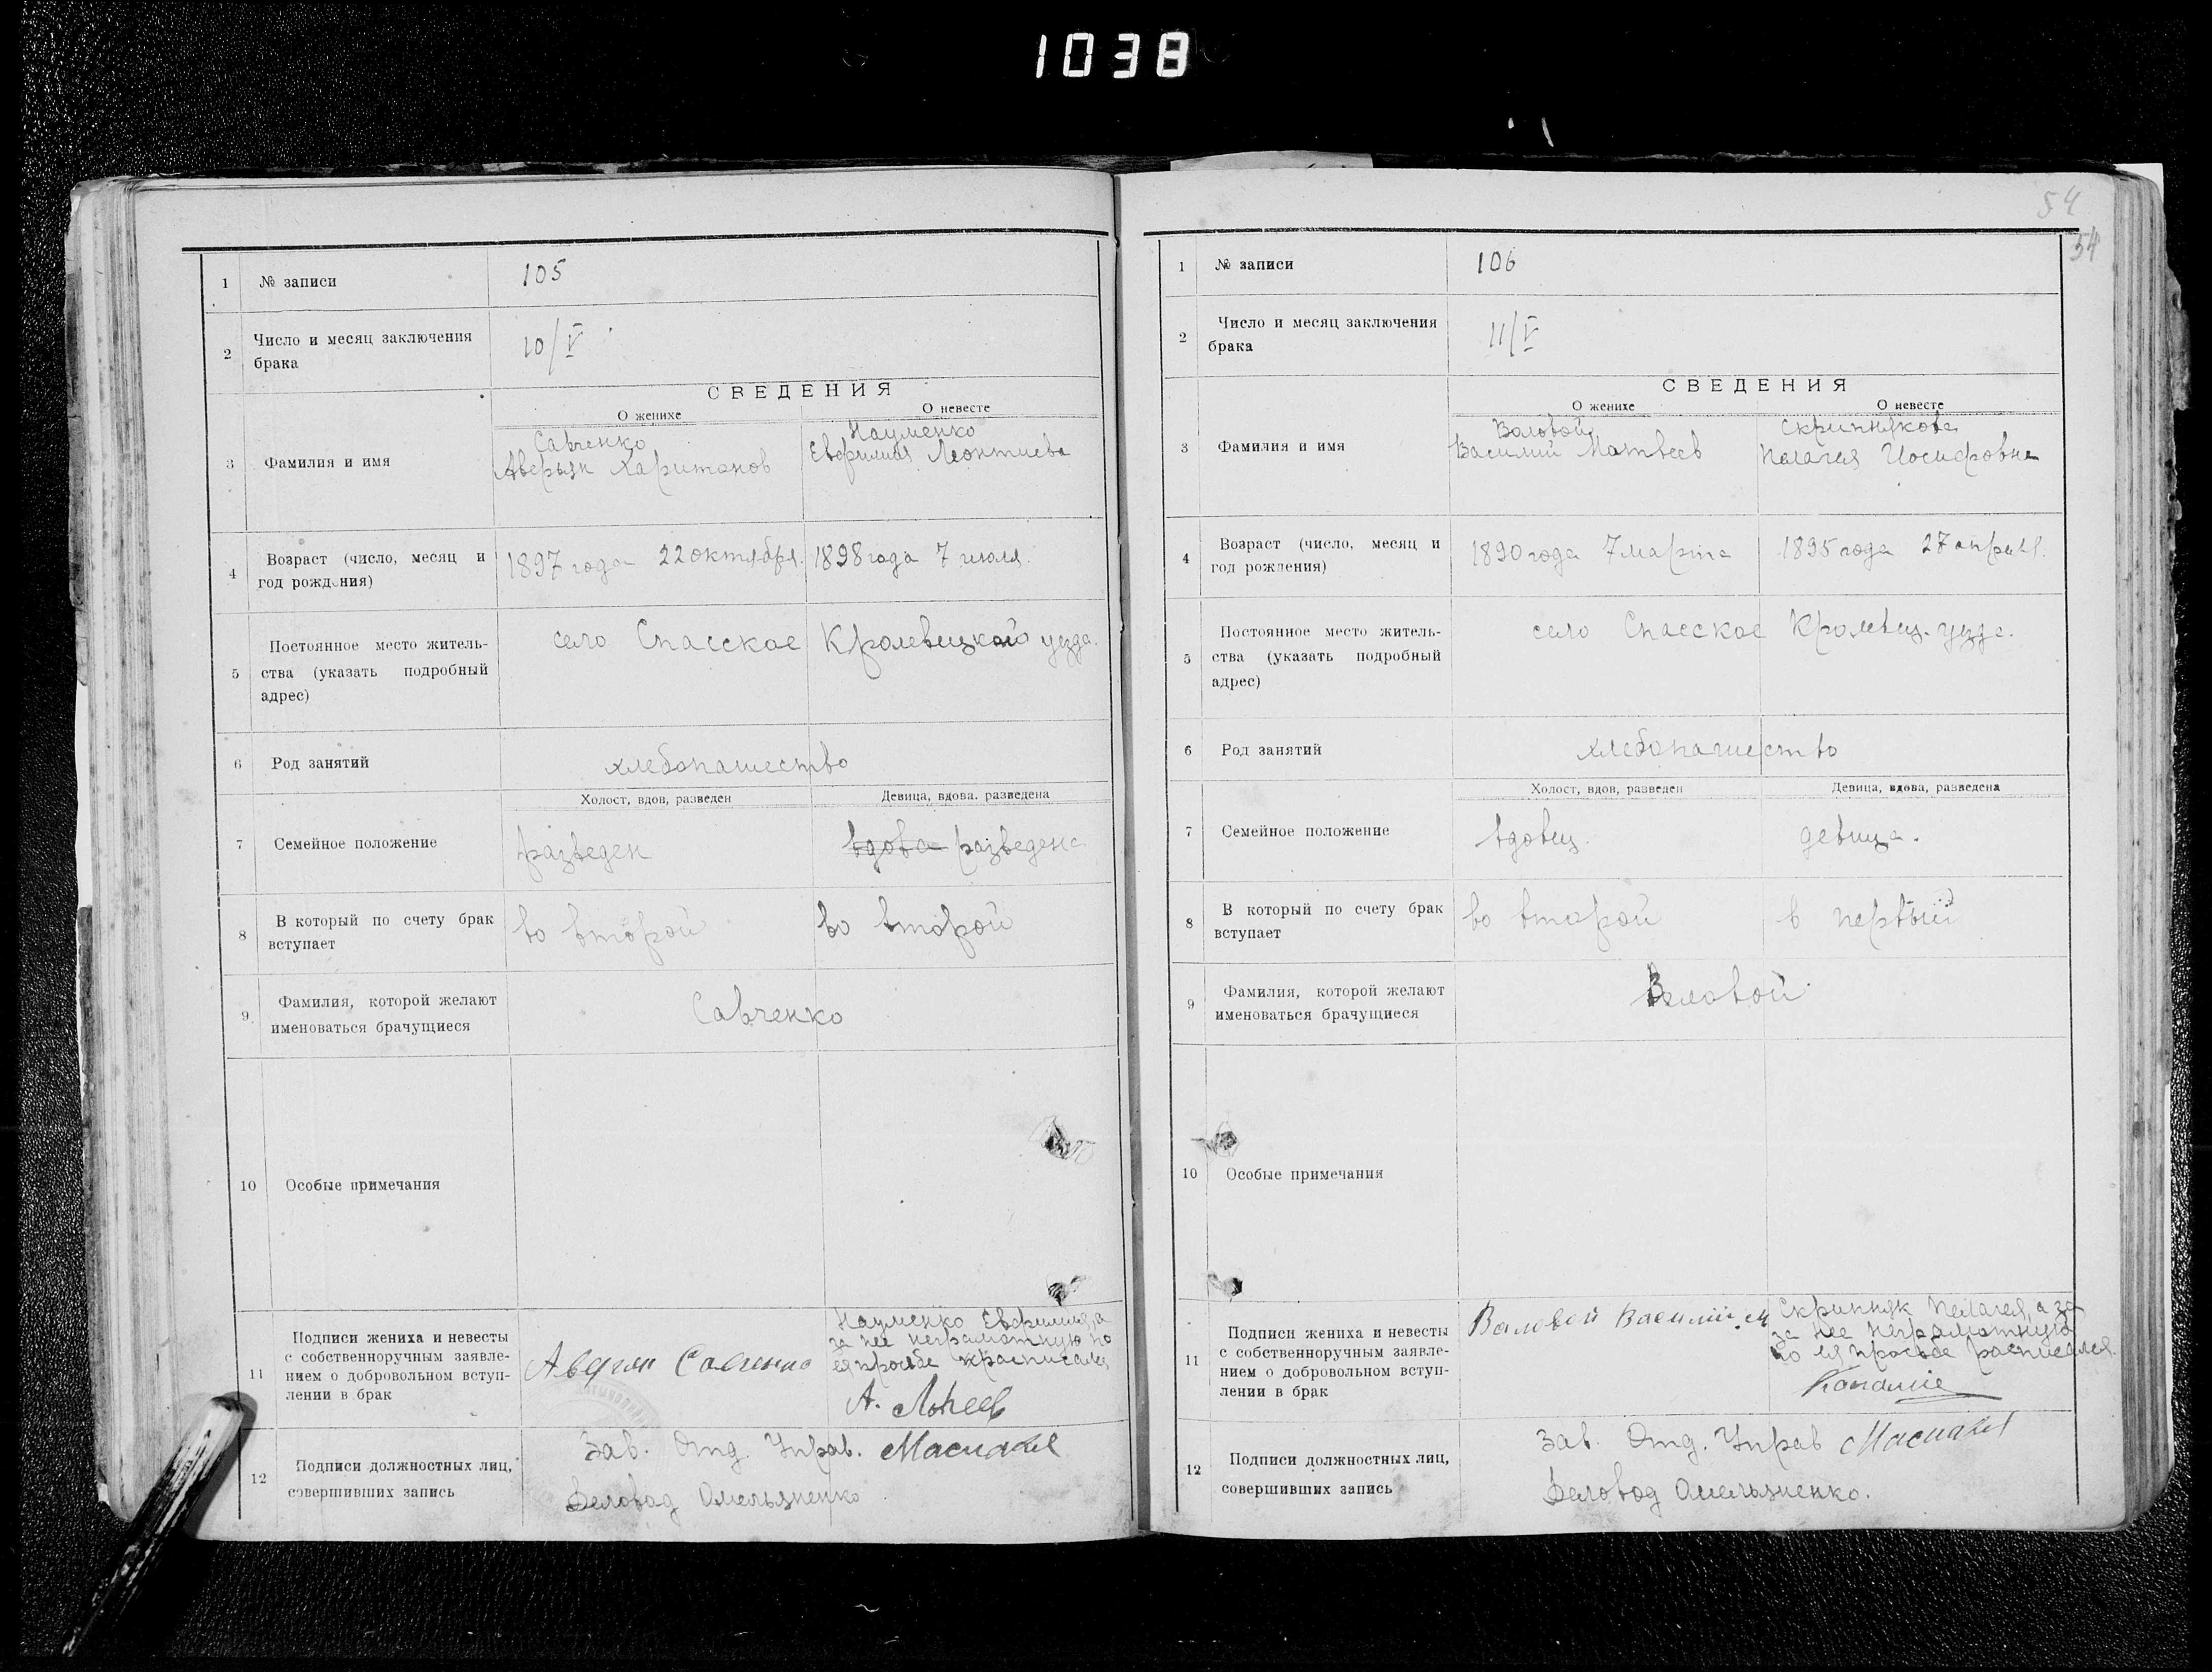 1038
1 № записи 105
2 Число и месяц заключения
брака
10/V
СВЕДЕНИЯ
О женихе О невесте
3 Фамилия и имя
Савченко
Аверьян Харитонов
Науменко
Евфимия Леонтиева
4 Возраст (число, месяц и
год рождения)
1897 года 22 октября. 1898 года 7 июля.
5 Постоянное место житель-
ства (указать подробный
адрес)
село Спасское Кролевецкого уезда.
6 Род занятий хлебопашество
Холост, вдов, разведен Девица, вдова. разведена
7 Семейное положение разведен вдова разведена
8 В который по счету брак
вступает
во второй во второй
9 Фамилия, которой желают
именоваться брачущиеся
Савченко
10 Особые примечания
11 Подписи жениха и невесты
с собственноручным заявле-
нием о добровольном вступ-
лении в брак
Савченко
Науменко Евфимия, а
за нее неграмотную по
ея просьбе расписался
А.
12 Подписи должностных лиц,
совершивших запись
Зав. Отд. Управ.
Деловод Омельяненко
54
54
1 № записи 106
2 Число и месяц заключения
брака
11/V
СВЕДЕНИЯ
О женихе О невесте
3 Фамилия и имя
Воловой
Василий Матвеев
Скрипнякова
Палагея Иосифовна
4 Возраст (число, месяц и
год рождения)
1890 года 7 марта 1895 года 27 апреля.
5 Постоянное место житель-
ства (указать подробный
адрес)
село Спасское Кролевец. уезда.
6 Род занятий хлебопашество
Холост, вдов, разведен Девица, вдова, разведена
7 Семейное положение вдовец. девица.
8 В который по счету брак
вступает
во второй в первый
9 Фамилия, которой желают
именоваться брачущиеся
Воловой
10 Особые примечания
11 Подписи жениха и невесты
с собственноручным заявле-
нием о добровольном вступ-
лении в брак
Воловой Василий. М
Скрипняк Пелагея, а за
за нее неграмотную
по ея просьбе расписался.
12 Подписи должностных лиц,
совершивших запись
Зав. Отд. Управ
Деловод Омельяненко.